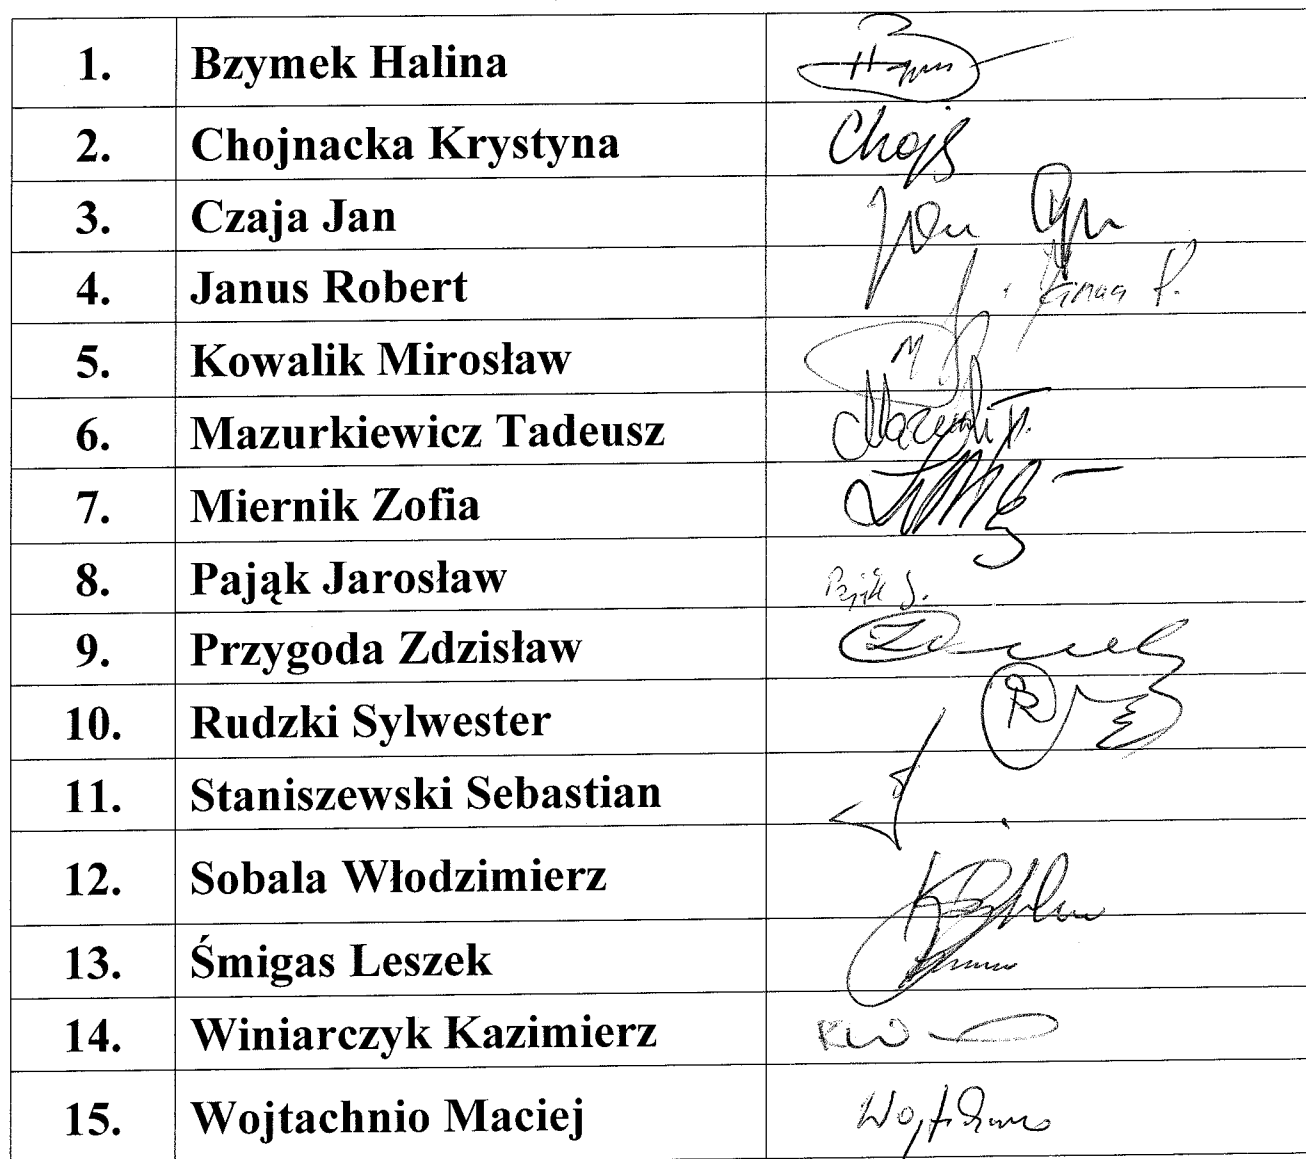 1. Bzymek Halina
2. Chojnacka Krystyna
3. Czaja Jan Jan
4. Janus Robert
5. Kowalik Mirosław
6. Mazurkiewicz Tadeusz
7. Miernik Zofia
8. Pająk Jarosław Pająk J.
9. Przygoda Zdzisław
10. Rudzki Sylwester
11. Staniszewski Sebastian
12. Sobala Włodzimierz
13. Śmigas Leszek
14. Winiarczyk Kazimierz
15. Wojtachnio Maciej